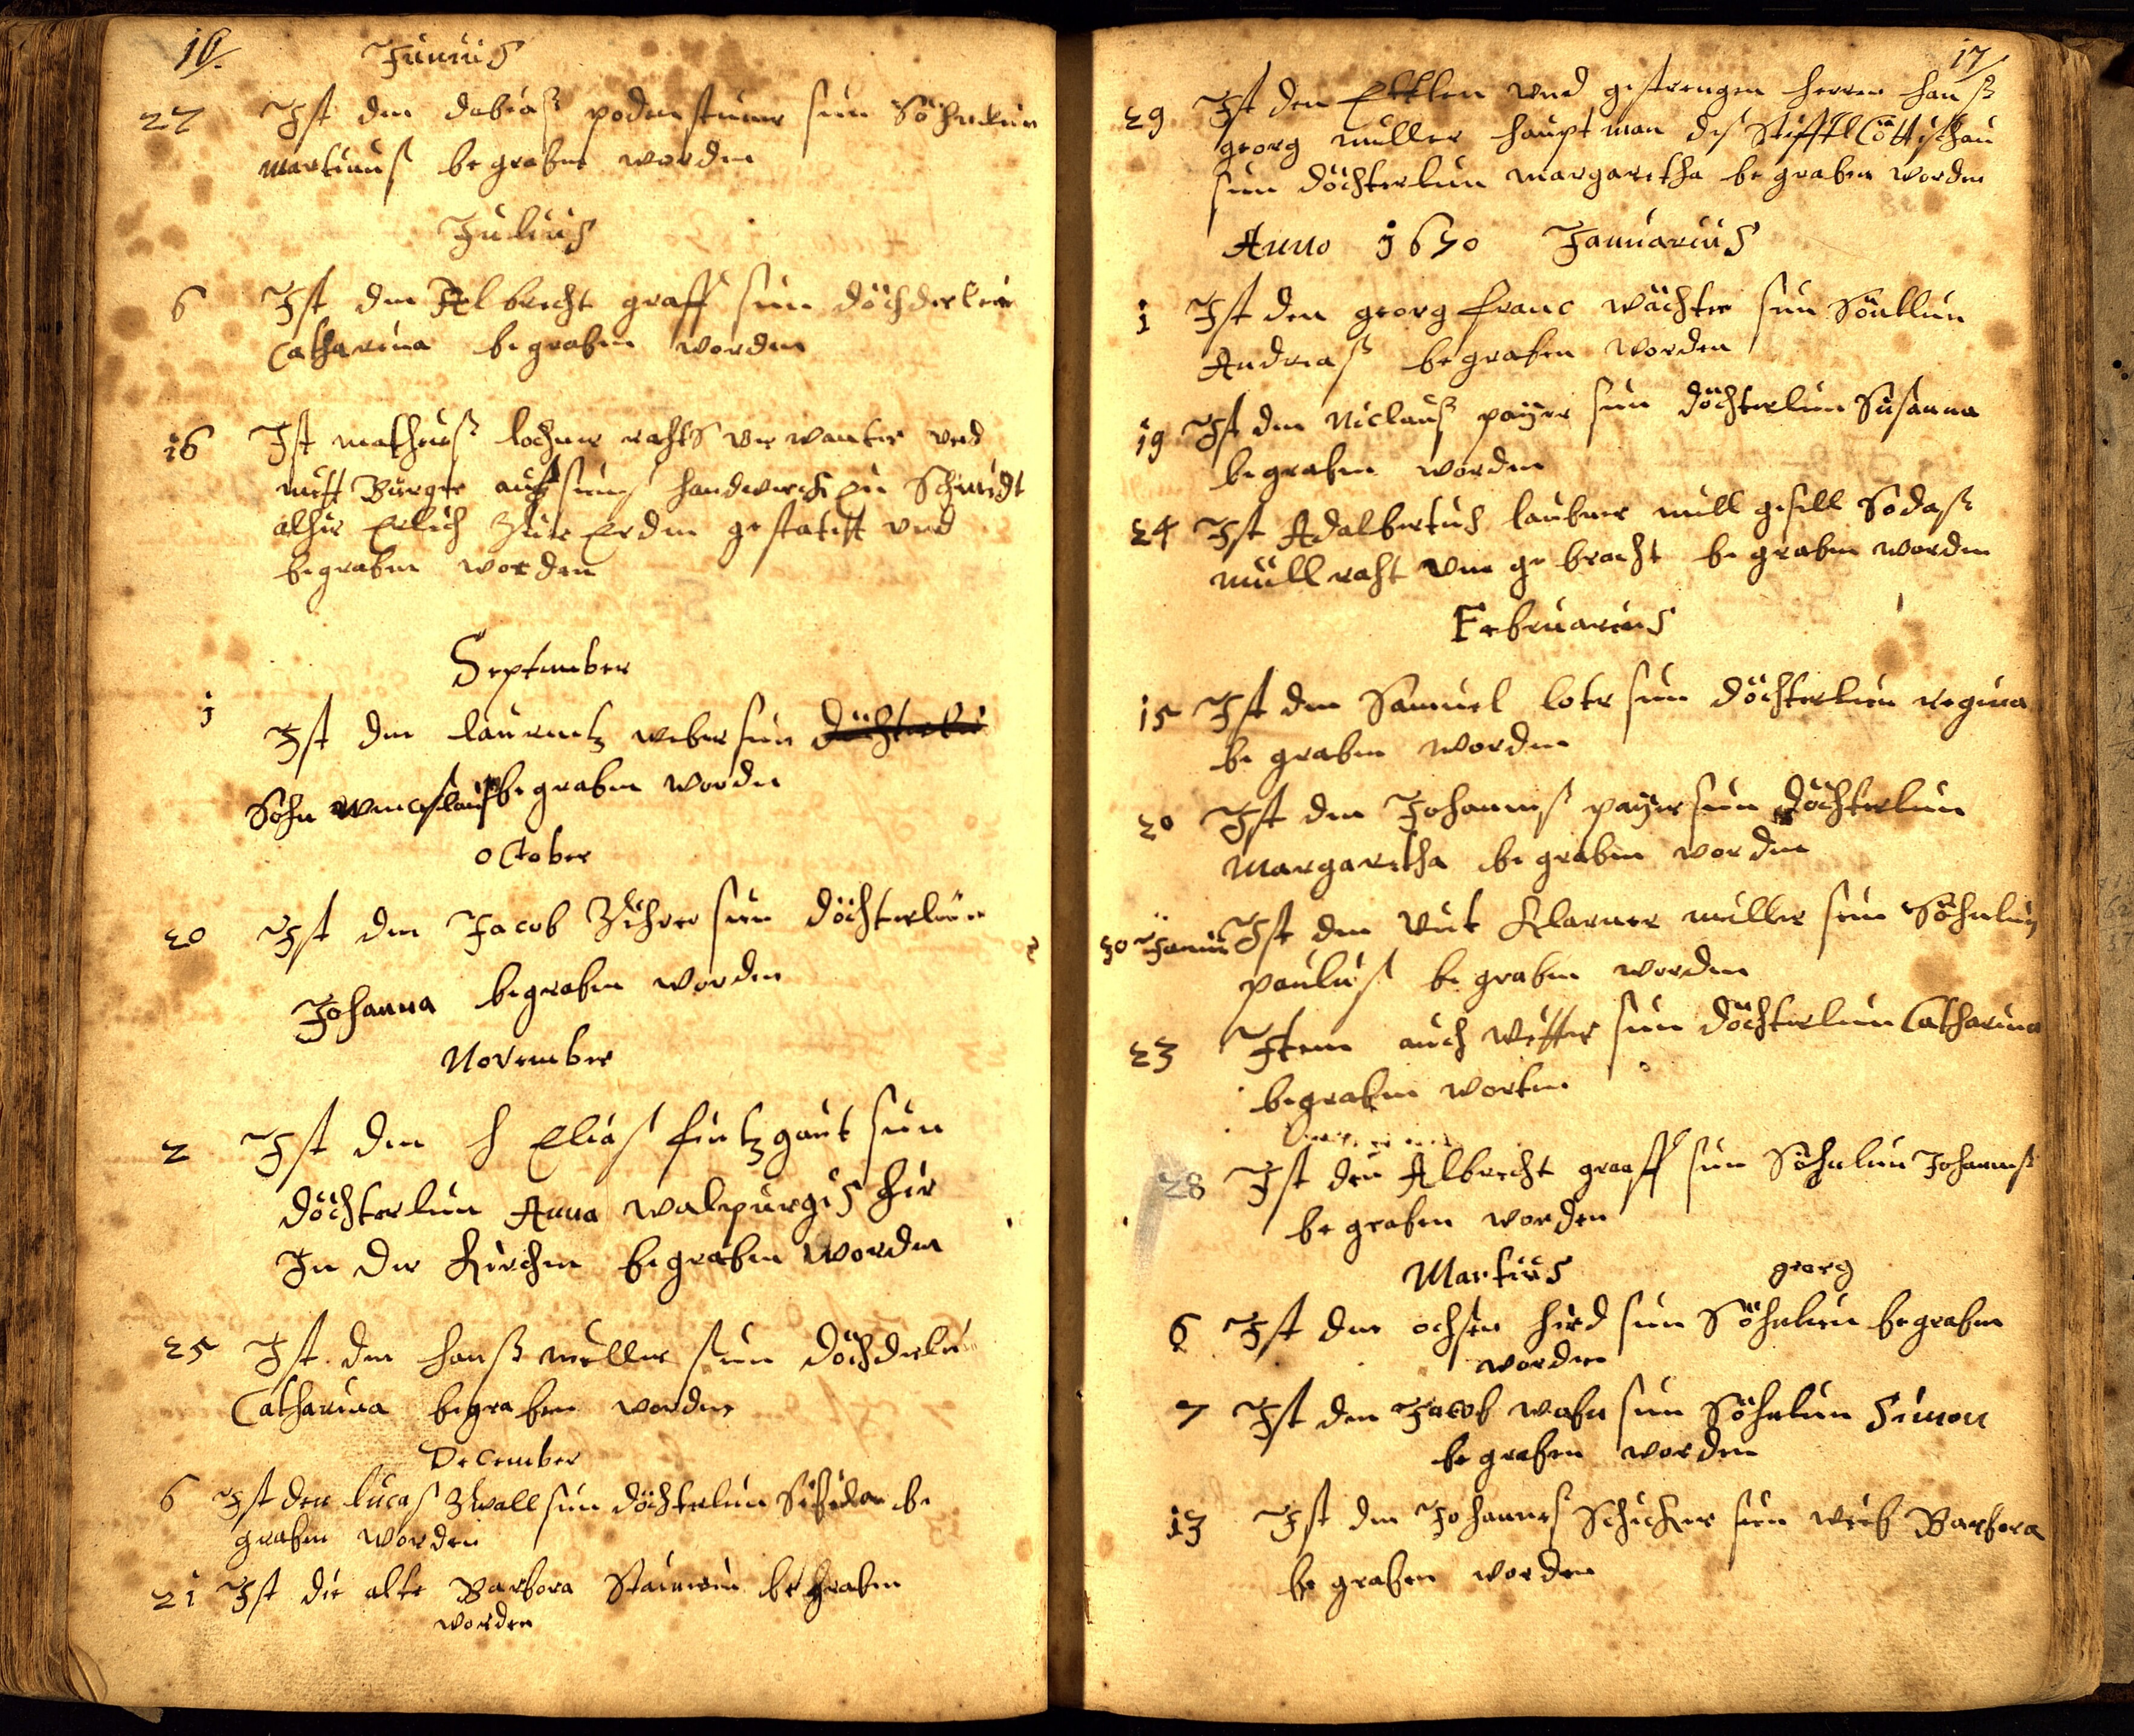 16
Junius
27 Ist den dobiaß podenstuner sein Söhnlein
Martinus begraben worden
Julius
6 Ist den Albrecht graff sein döchderlein
Catharina begraben worden
16 Ist matheuß lochner rahts ver wanter und
mitt Burger auch seines handwerch ein Schmidt
alhir Erlich Zuir Erden gestatet und
begraben worden
September
1
Ist den laurentz weber sein
Sohn Wenceslaus begraben worden
October
20 Ist den Jacob sein döchterlein
Johanna begraben worden
November
2 Ist den h Elias sein
döchterlein Anna walpurgis hir
In der Kirchen begraben worden
25 Ist den hanß müller sein döchderlei
Catharina begraben worden
December
6 Ist den lucas Zwall sein döchterlein be
graben worden
21 Ist die alte Barbora begraben
worden
17
29 Ist den Edtlen und gestrengen herren hanß
georg muller haupt man des Stifftl
sein döchterlein margaretha be graben worden
Anno 1670 Januarius
1 Ist den georg franc wächter sein Sönllein
Andreaß begraben worden
19 Ist den Niclauß payer sein döchterlein Susanna
begraben worden
24 Ist Adalbertus laubner mill gesell Sodaß
müll raht um ge bracht be graben worden
Februarius
15 Ist den Samuel lotr sein döchterlein regina
be graben worden
20 Ist den Johannes payer sein döchterlein
Margaretha be graben worden
30 Ist den Veit Klarner miller sein Söhnlein
paulus be graben worden
23 Item auch sein döchterlein Catharina
begraben worten
28 Ist den Albrecht graaff sein Söhnlein Johannes
be graben worden
Martius georg
6 Ist den ochsen hird sein Söhnlein begraben
worden
7 Ist den Jacob sein Söhnlein Simon
be graben worden
13 Ist den Johannes sein weib Barbora
be graben worden